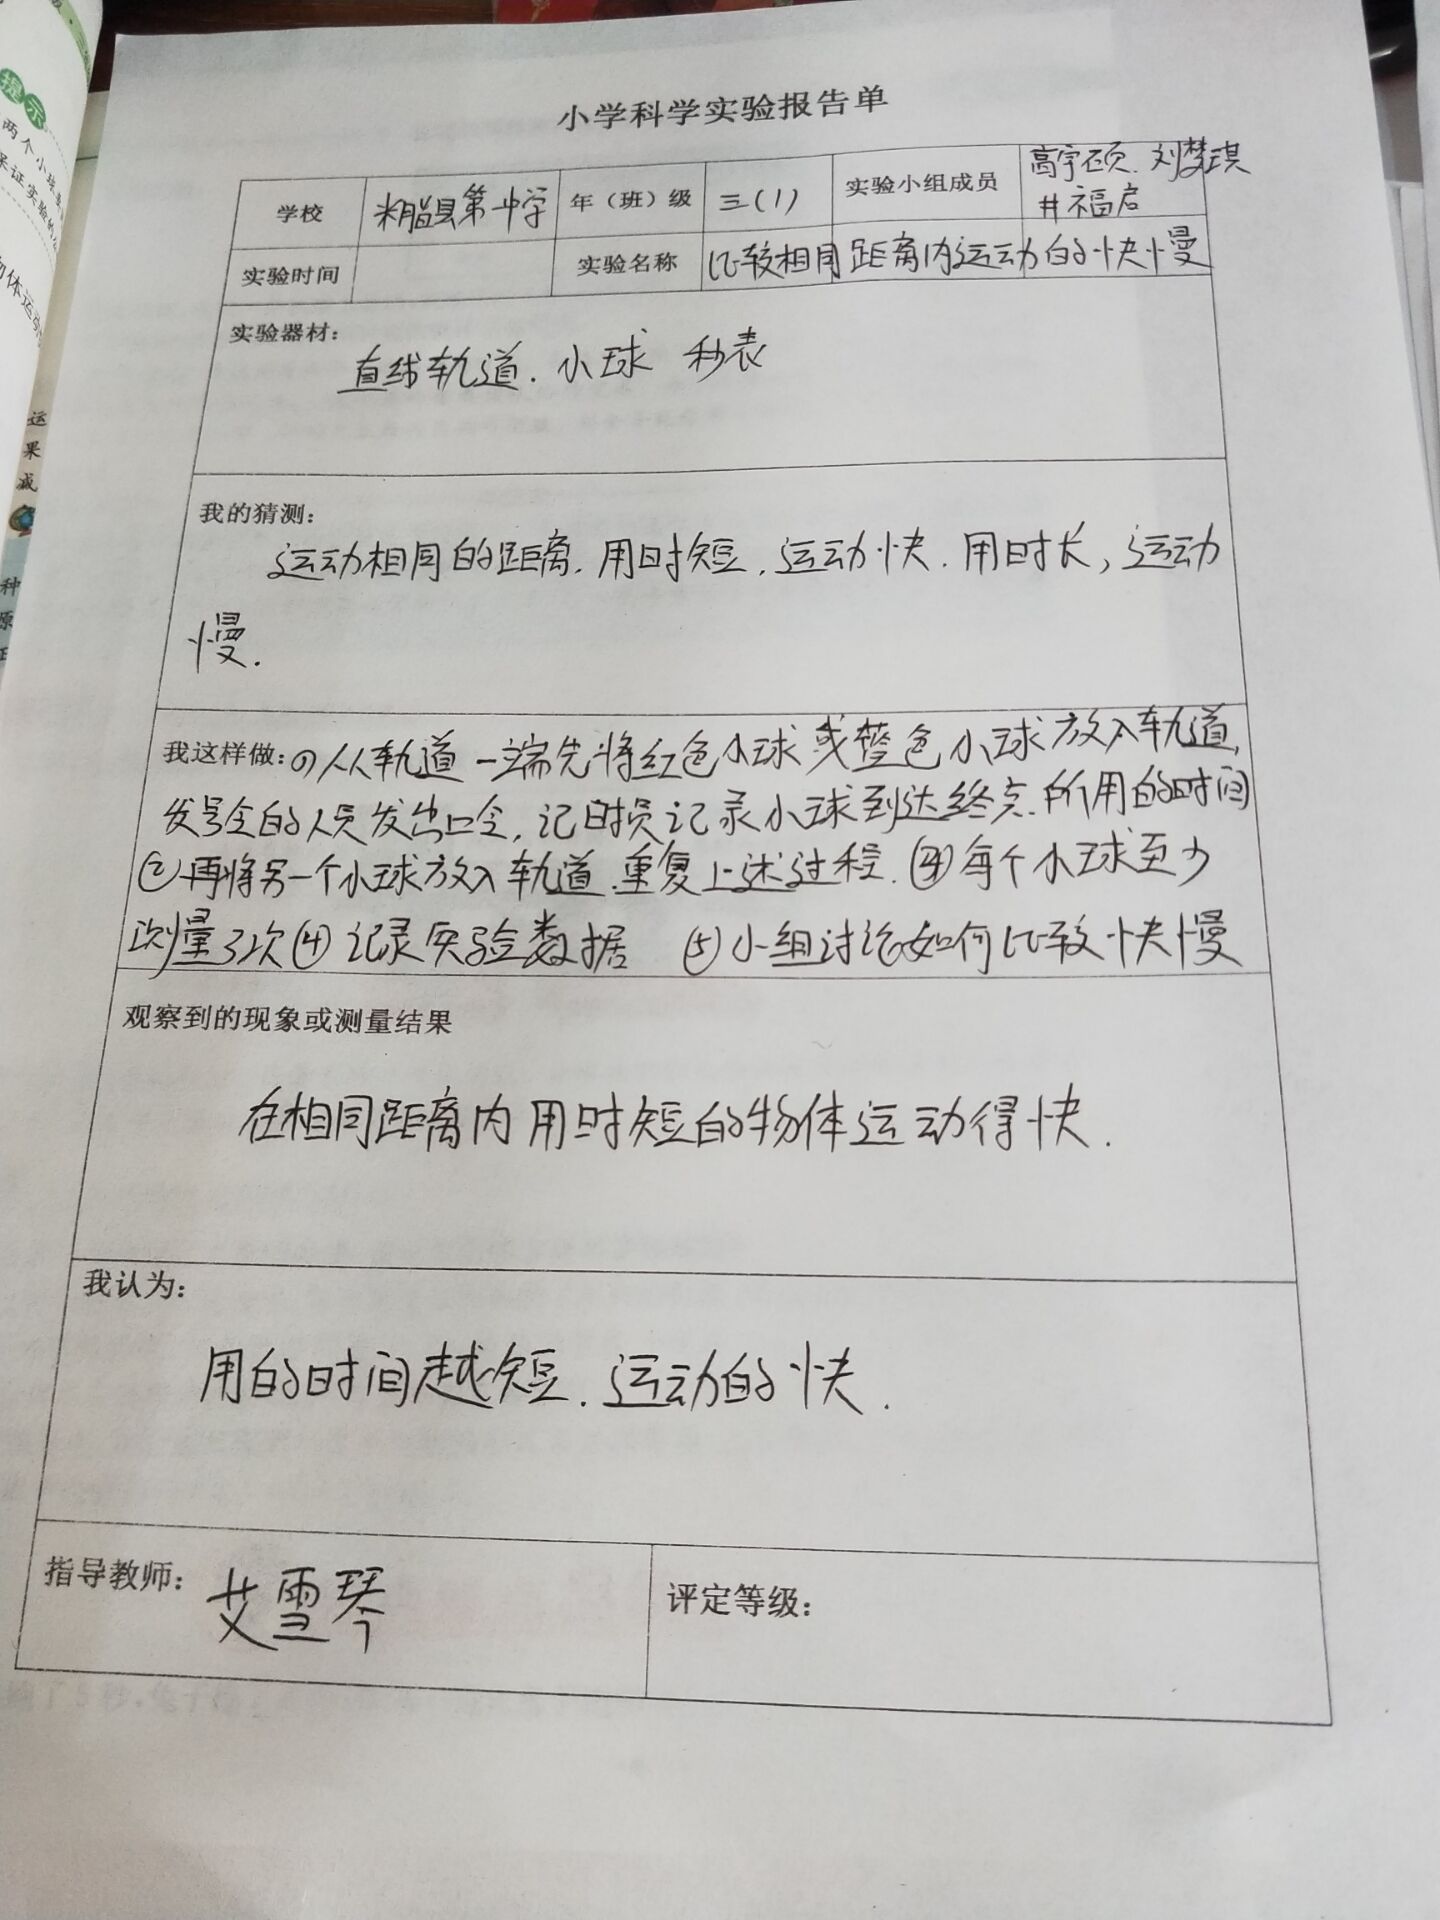 提示
两个小球
保证实验的公
物体运动
运
果
减
种
原
小学科学实验报告单
学校 米脂县第一中学 年（班）级 三(1) 实验小组成员 高宇硕、刘梦琪
井福启
实验时间 实验名称 比较相同距离内运动的快慢
实验器材：
直线轨道．小球 秒表
我的猜测：
运动相同的距离．用时短．运动快．用时长，运动
慢．
我这样做：①从轨道一端先将红色小球或蓝色小球放入轨道，
发号令的人员发出口令，记时员记录小球到达终点所用的时间
②再将另一个小球放入轨道．重复上述过程．④每个小球至少
测量3次④记录实验数据 ⑤小组讨论如何比较快慢
观察到的现象或测量结果
在相同距离内用时短的物体运动得快．
我认为：
用的时间越短．运动的快．
指导教师：艾雪琴 评定等级：